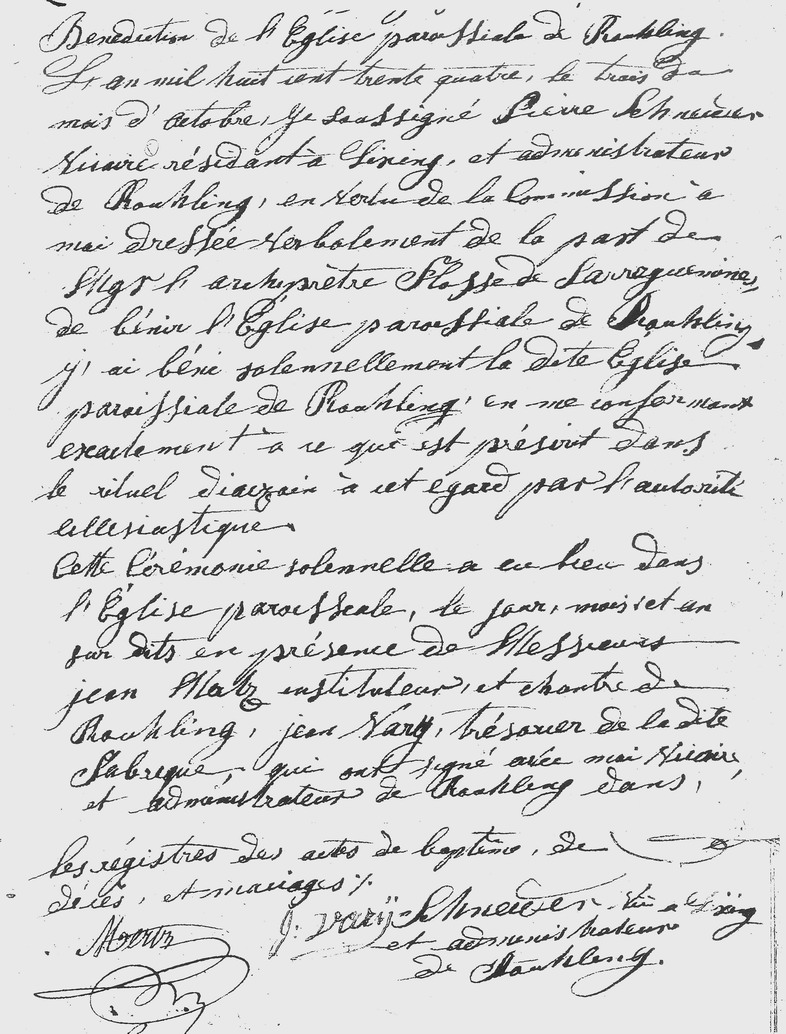 Benediction de l'Église paroissiale de Rouhling.
L'an mil huit cent trente quatre, le trois du
mois d'octobre, je soussigné Pierre Schneider
Vicaire résidant à Lixing, et administrateur
de Rouhling, en vertu de la Commission à
moi dressée verbalement de la part de
Mgr l'archiprètre Flosse de Sarreguemines,
de bénir l'Église paroissiale de Rouhling,
j'ai béni solennellement la dite Église
paroissiale de Rouhling, en me conformant
exactement à ce qui est présirit dans
le rituel diocésain à cet egard par l'autorité
ecclesiastique.
Cette Cérémonie solennelle a eu lieu dans
l'Église paroissiale, le jour, mois et an
sur dits en présence de Messieurs
jean Metz instituteur, et chantre de
Rouhling, jean Vary, trésorier de la dite
Fabrique, qui ont signé avec moi Vicaire
et administrateur de Rouhling dans,
les régistres des actes de baptême, de
décès, et mariages %.
J. Varÿ Schneider Vic a Lixing
et administrateur
de Rouhling.